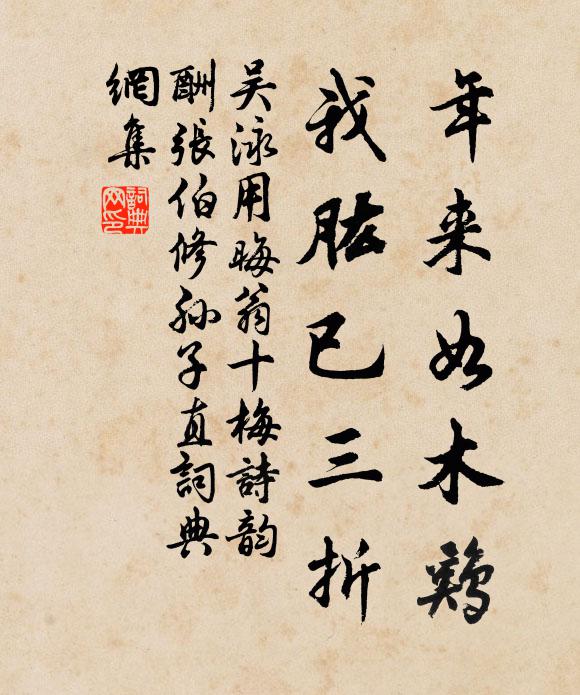 年来如木鷄
我肱已三折
吴泳用晦翁十梅詩韵
酬張伯修孙子直詞典
網集
詞典
网印